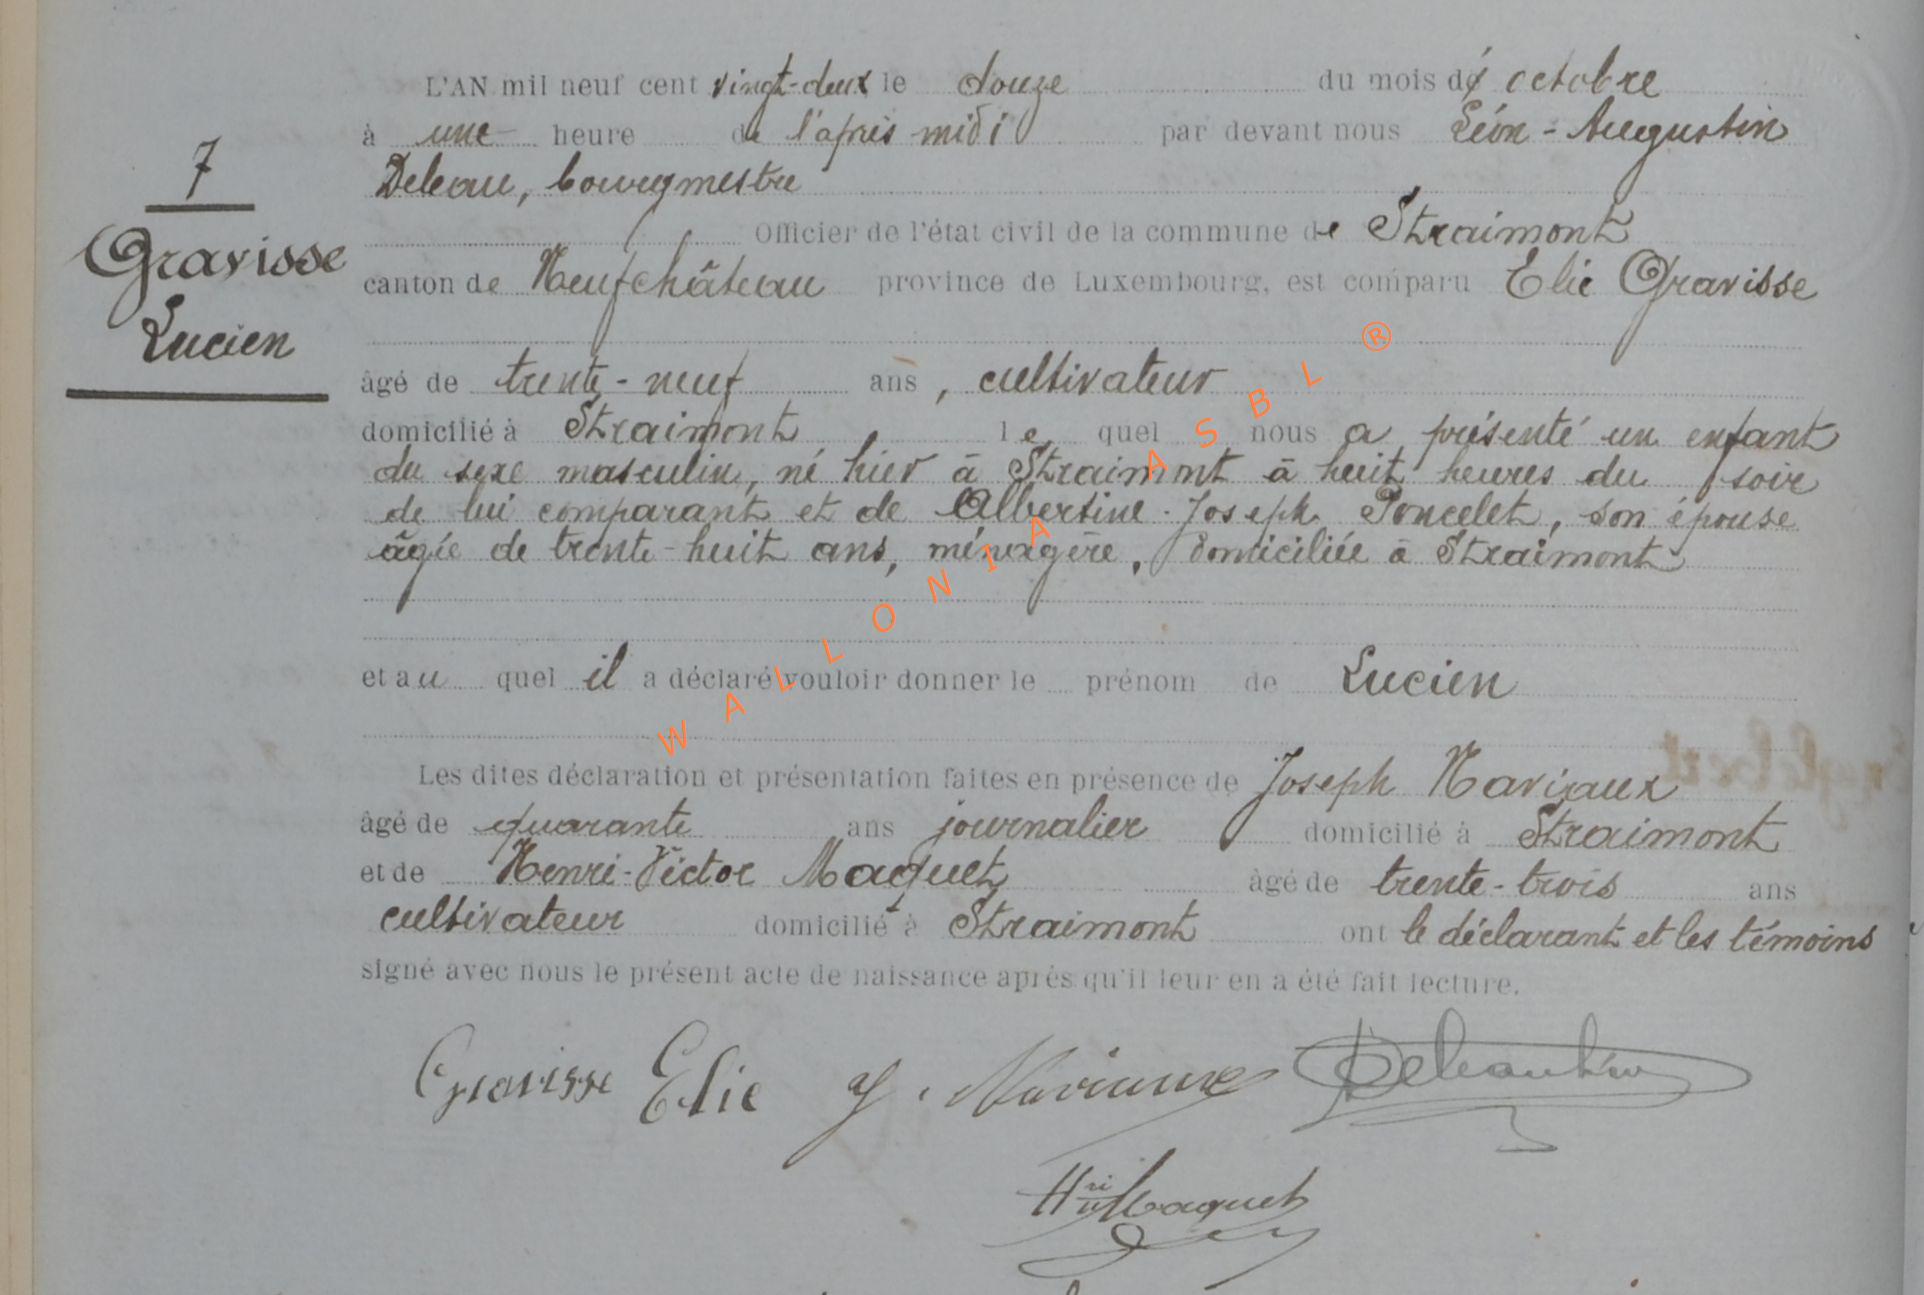 7
Gravisse
Lucien
L'AN mil neuf cent vingt-deux le douze du mois d' octobre
à une heure de l'après midi par devant nous Léon-Augustin
Deleau, bourgmestre
Officier de l'état civil de la commune de Straimont
canton de Neufchâteau province de Luxembourg, est comparu Elie Gravisse
âgé de trente-neuf ans, cultivateur
domicilié à Straimont lequel nous a présenté un enfant
du sexe masculin, né hier à Straimont à huit heures du soir
de lui comparant et de Albertine-Joseph Poncelet, son épouse
âgée de trente-huit ans, ménagère, domiciliée à Straimont
et au quel il a déclaré vouloir donner le prénom de Lucien
Les dites déclaration et présentation faites en présence de Joseph Naviaux
âgé de quarante ans journalier domicilié à Straimont
et de Henri-Victor Maquet âgé de trente-trois ans
cultivateur domicilié à Straimont ont le déclarant et les témoins
signé avec nous le présent acte de naissance après qu'il leur en a été fait lecture.
Gravisse Elie J. Naviaux
Hri Maquet
WALLONIA ASBL ®